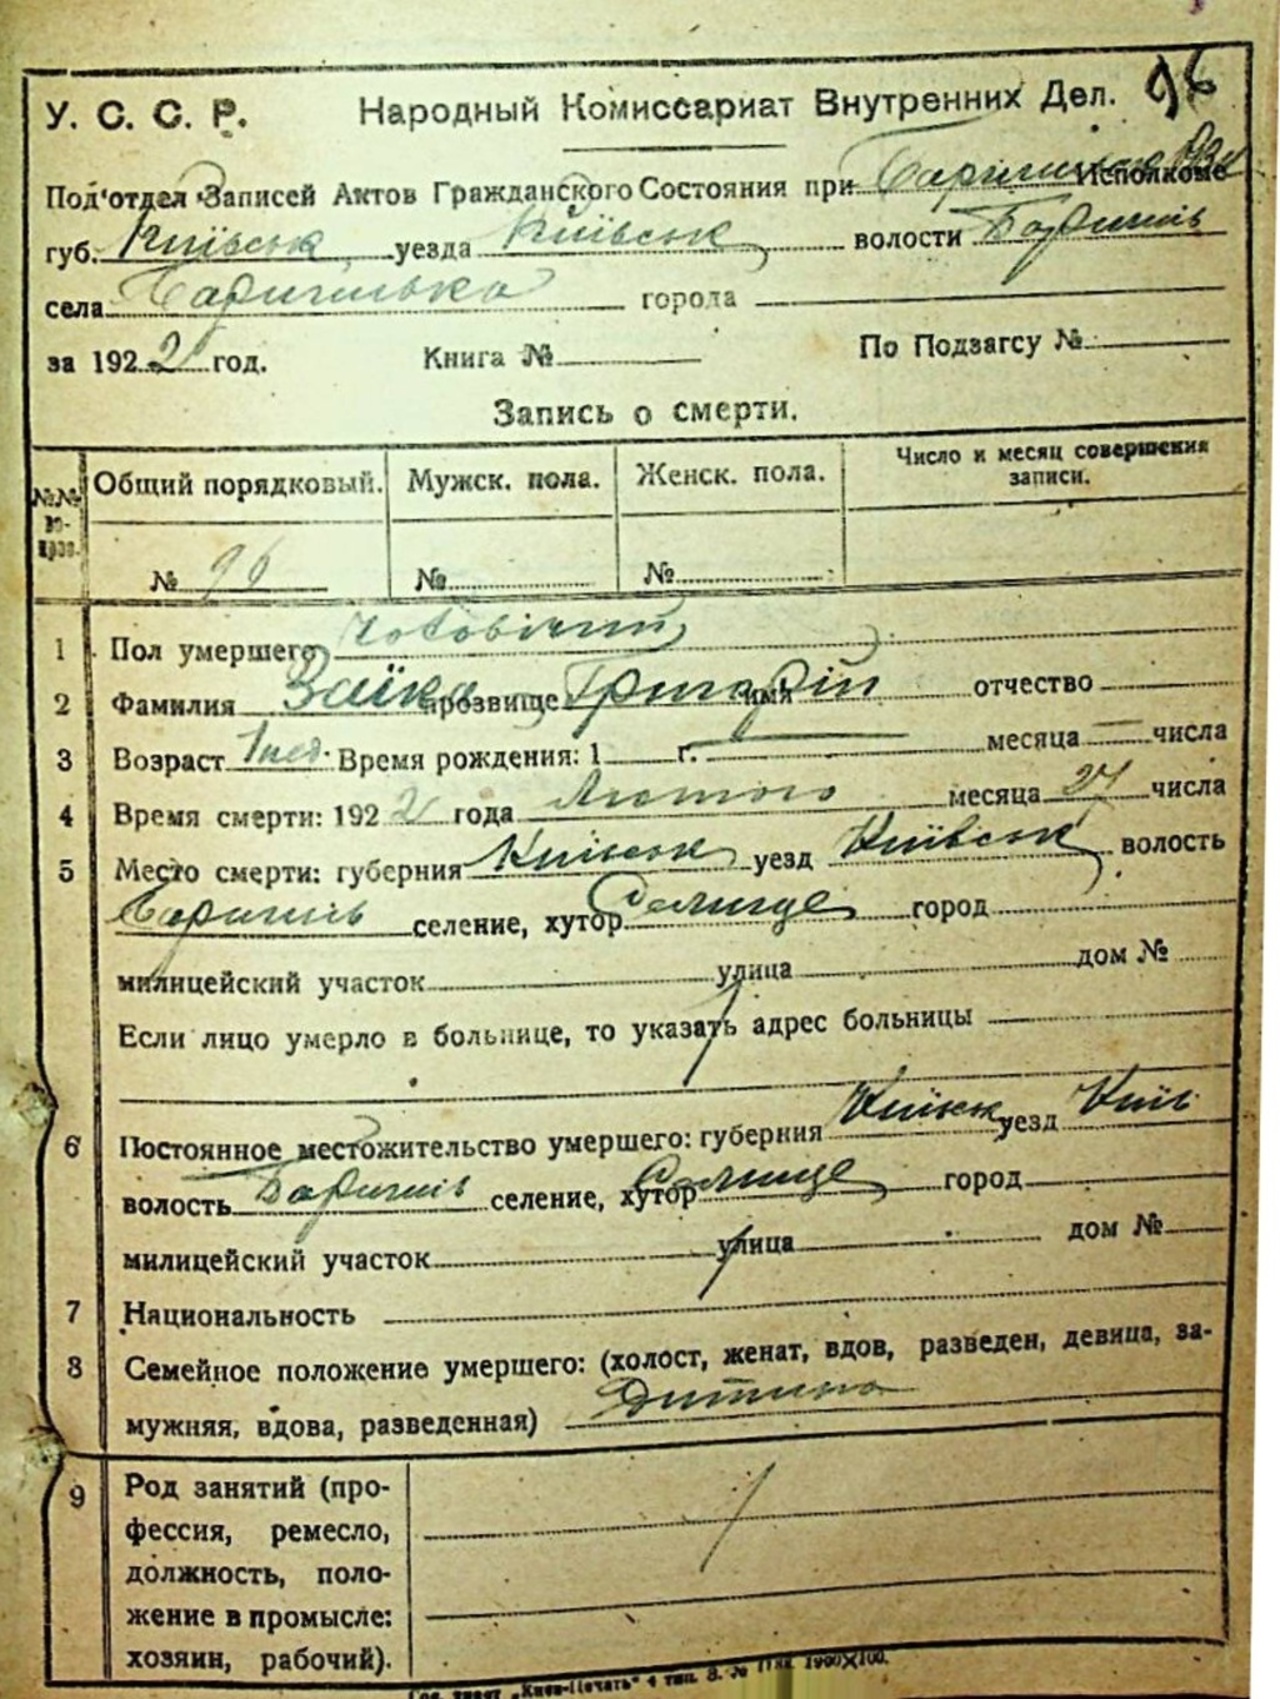 У. С. С. Р. Народный Комиссариат Внутренних Дел. 96
Под'отдел Записей Актов Гражданского Состояния при Исполкоме
губ. Київськ уезда Київськ волости Баришів
села города
за 1922 год. Книга № По Подзагсу №
Запись о смерти.
№№ Общий порядковый. Мужск. пола. Женск. пола. Число и месяц совершения записи.
№ 96 № №
1 Пол умершего Чоловічий
2 Фамилия Заїка прозвище Григорій имя отчество
3 Возраст 1 нед. Время рождения: 1 г. месяца — числа
4 Время смерти: 1922 года Лютого месяца 27 числа
5 Место смерти: губерния Київськ уезд Київськ волость
Баришів селение, хутор Селище город
милицейский участок улица дом №
Если лицо умерло в больнице, то указать адрес больницы
6 Постоянное местожительство умершего: губерния Київськ уезд Київ
волость Баришів селение, хутор Селище город
милицейский участок улица дом №
7 Национальность
8 Семейное положение умершего: (холост, женат, вдов, разведен, девица, за-
мужняя, вдова, разведенная) Дитина
9 Род занятий (про-
фессия, ремесло,
должность, поло-
жение в промысле:
хозяин, рабочий).
„Киев-Печать“ 4 тип. З. №